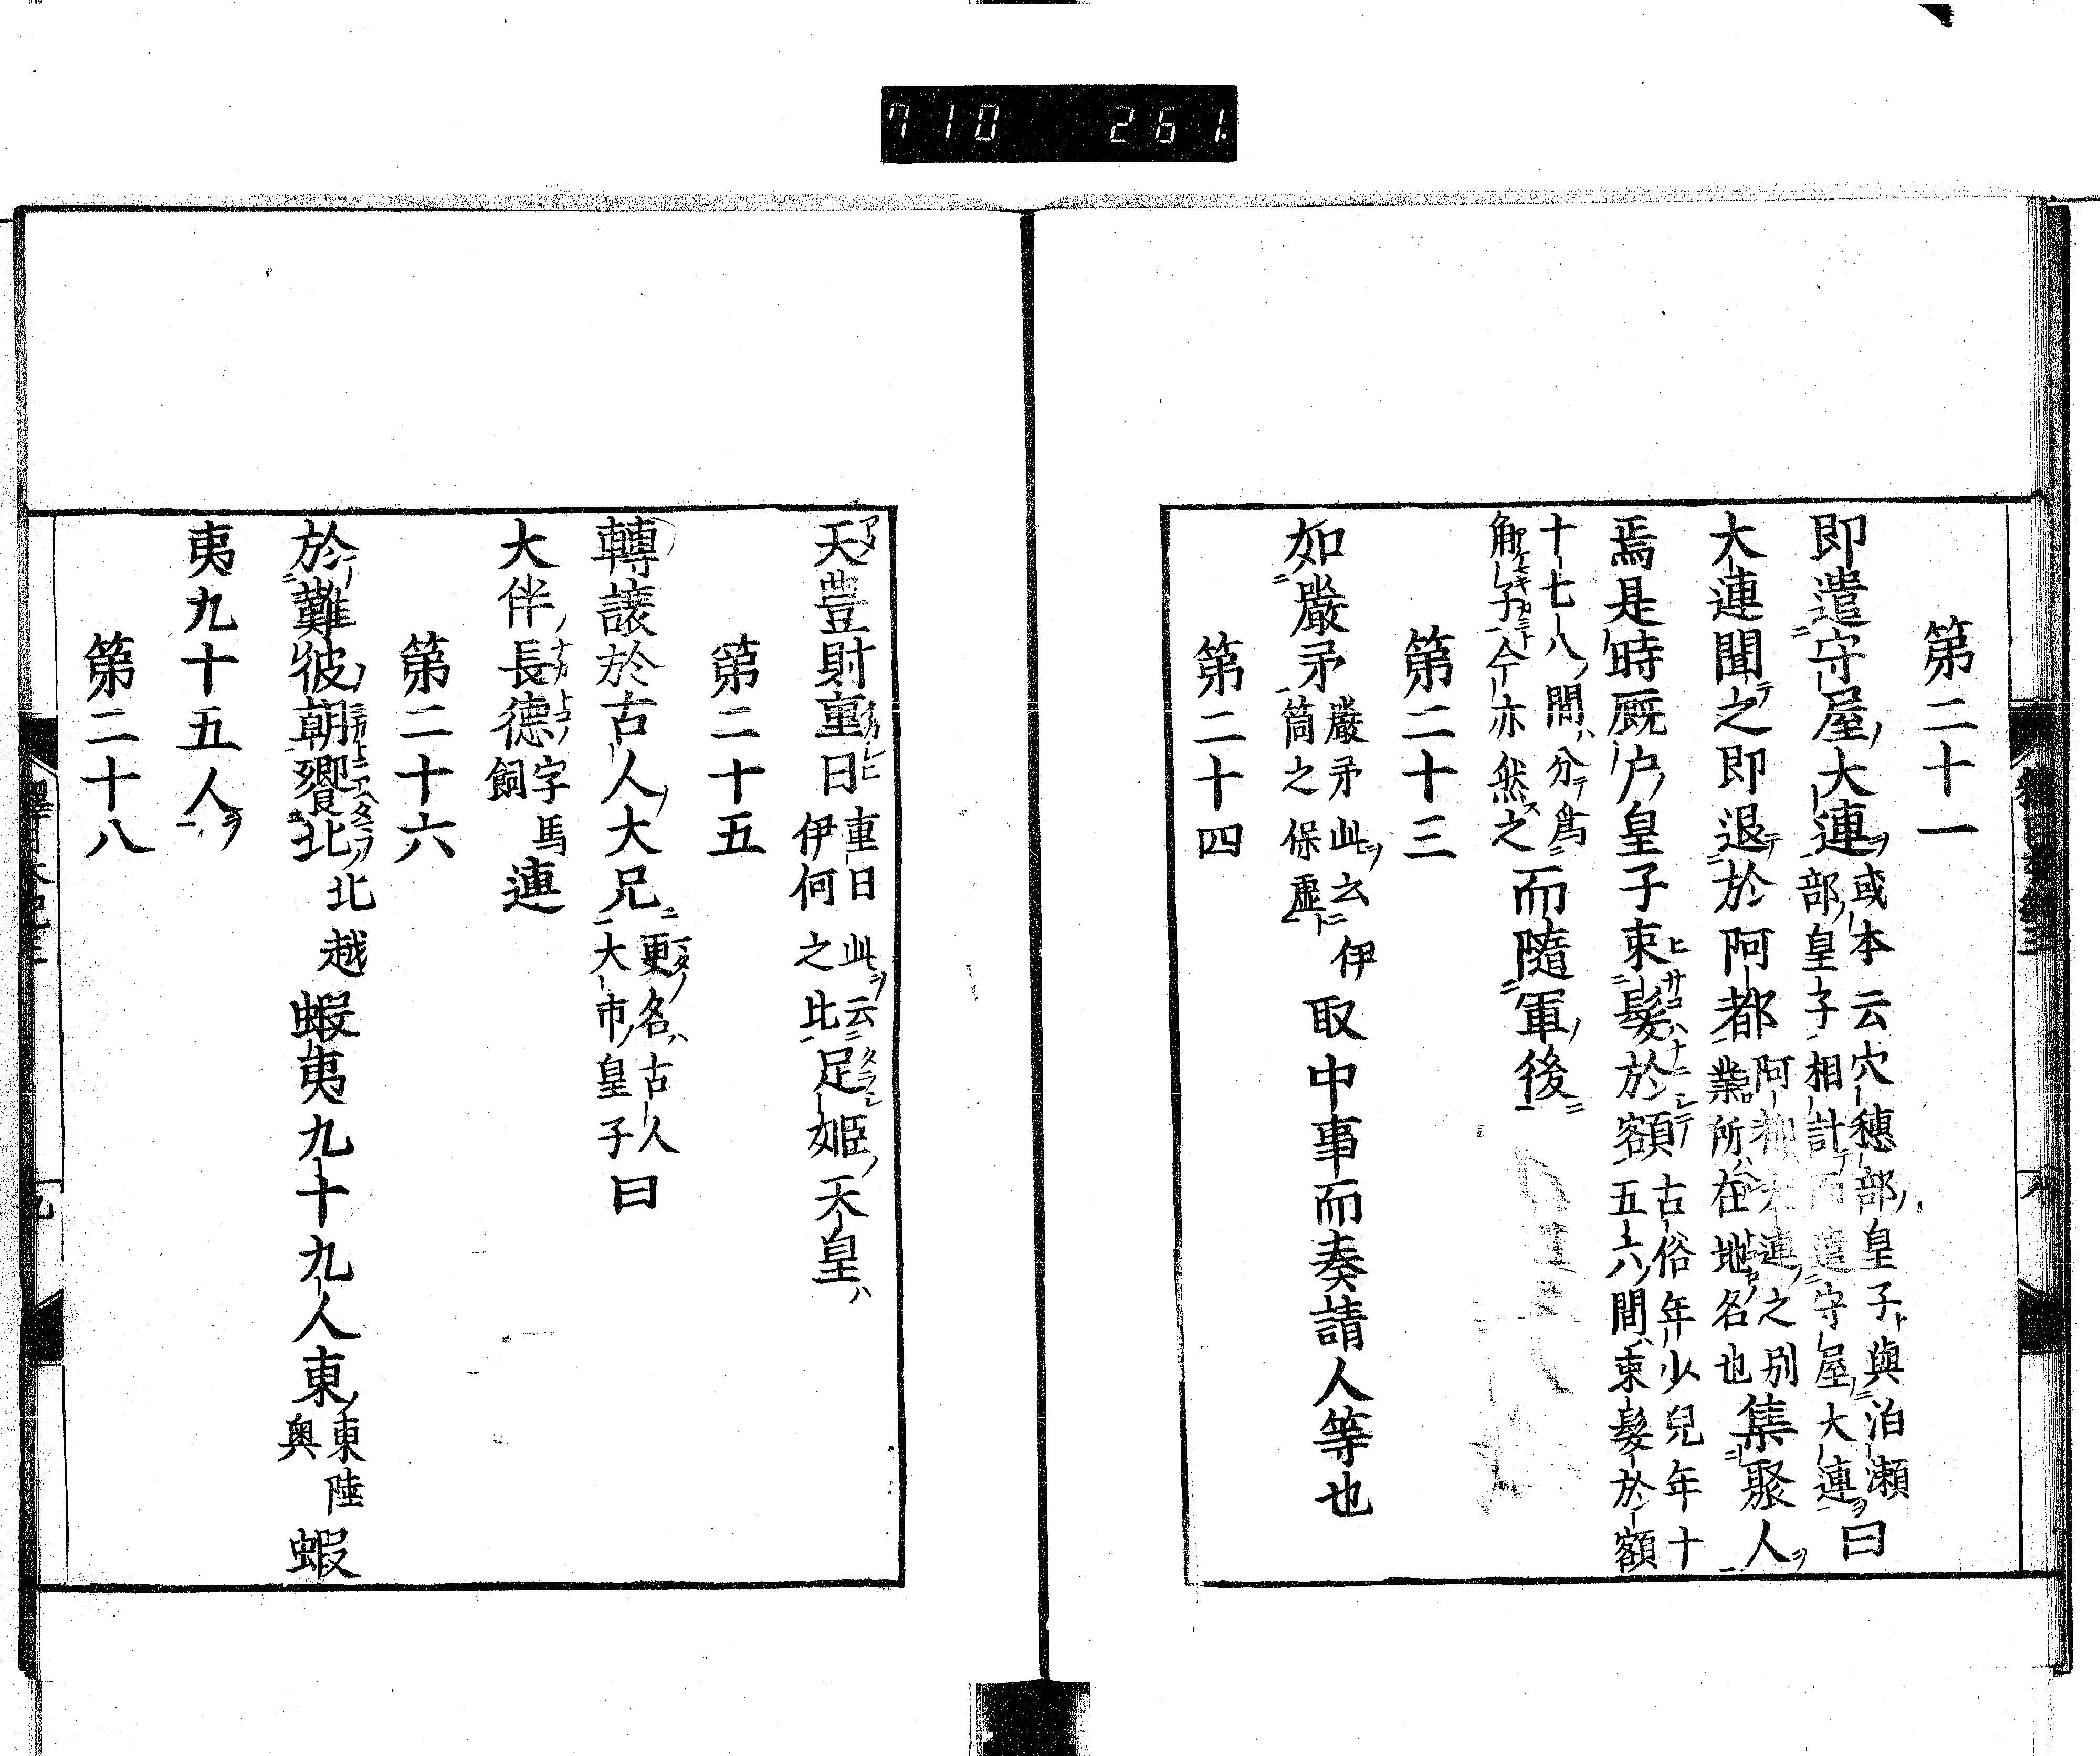 710 261
第二十一
即遣守屋大連或本云穴穂部皇子與泊瀬部皇子相計而遣守屋大連曰
大連聞之即退於阿都阿都大連之別業所在地名也集聚人
焉是時厩戸皇子束髮於額古俗年少兒年十五六間束髮於額
十七八間分為角子今亦然之而隨軍後
第二十三
如嚴矛嚴矛此云伊箇之保虛取中事而奏請人等也
第二十四
天豐財重日重日此云伊何之比足姬天皇
第二十五
轉讓於古人大兄更名古人大市皇子曰
大伴長德字馬飼連
第二十六
於難彼朝饗北北越蝦夷九十九人東東陸奥蝦
夷九十五人
第二十八